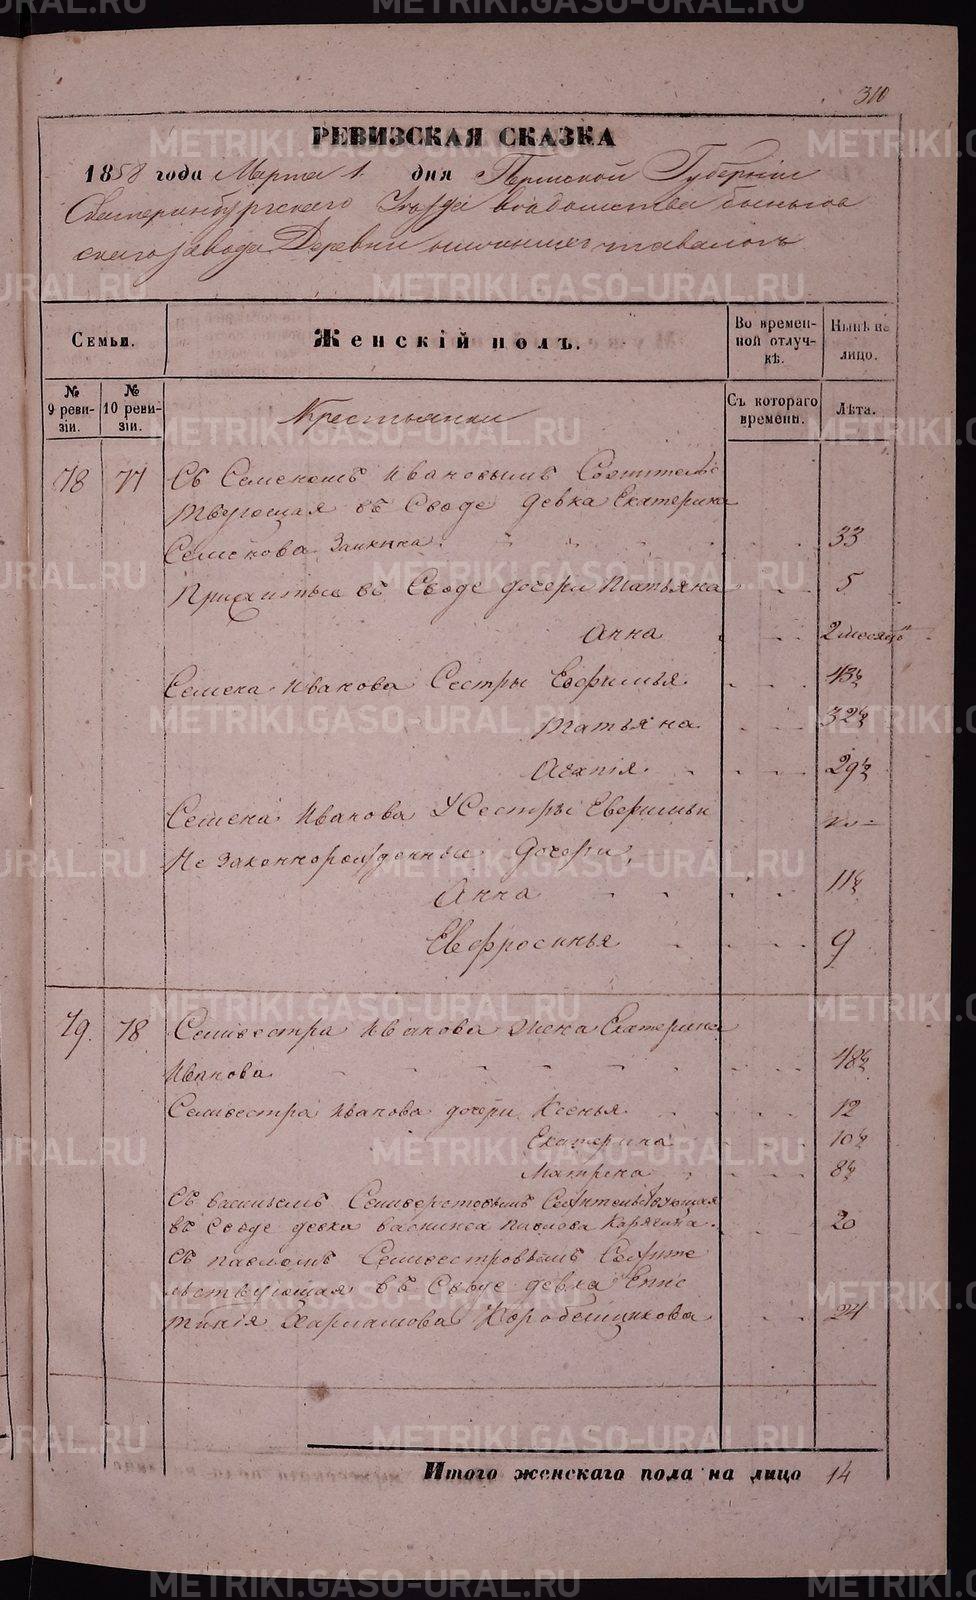 310
РЕВИЗСКАЯ СКАЗКА
1858 года Марта 1 дня Пермской Губернiи
Екатеринбургского Уезда ведомства Быньгов
скаго завода Деревни
Семьи. Женскiй полъ. Во времен-ной отлуч-кѣ. Нынѣ на лицо.
№ 9 реви-зiи. № 10 реви-зiи. Крестьянки Съ котораго времени. Лѣта.
78 77 Съ Семеномъ Ивановымъ Сожитель
ствующая въ Своде девка Екатерина
Семенова Заикина. 33
Прижитые въ Своде дочери Татьяна 5
Анна 2 месяцъ
Семена Иванова Сестры Евфимья 43½
Татьяна 32½
Агапiя 29½
Семена Иванова У Сестры Евфимьи
Не законнорожденные дочери,
Анна 11½
Евфросинья 9
79. 78 Селивестра Иванова жена Екатерина
Иванова 48½
Селивестра Иванова дочери Ксенья 12
Екатерина 10½
Матрена 8½
Съ Васильемъ Селиверстовымъ Сожительствующая
въ Своде девка Васкинса Павлова Карягина. 20
Съ Павломъ Селивестровымъ Сожите
льствующая въ Своде девка Епис
тимiя Харламова Коробейщикова 24
Итого женскаго пола на лицо 14
METRIKI.GASO-URAL.RU